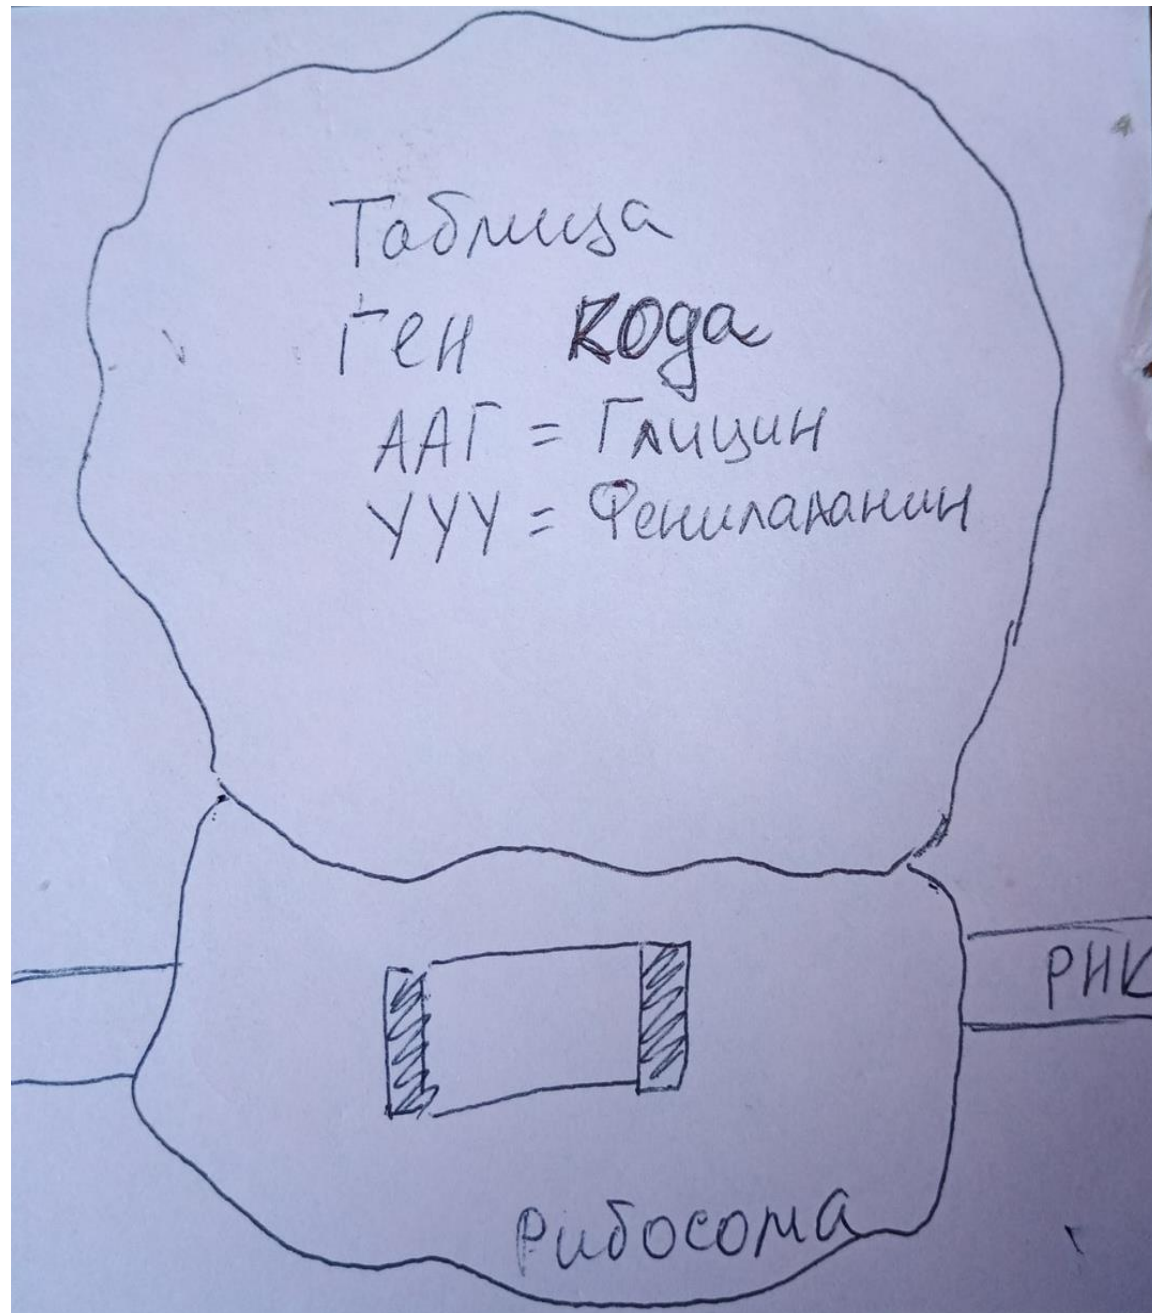 Таблица
Ген кода
ААГ = Глицин
УУУ = Фенилаланин
РНК
Рибосома